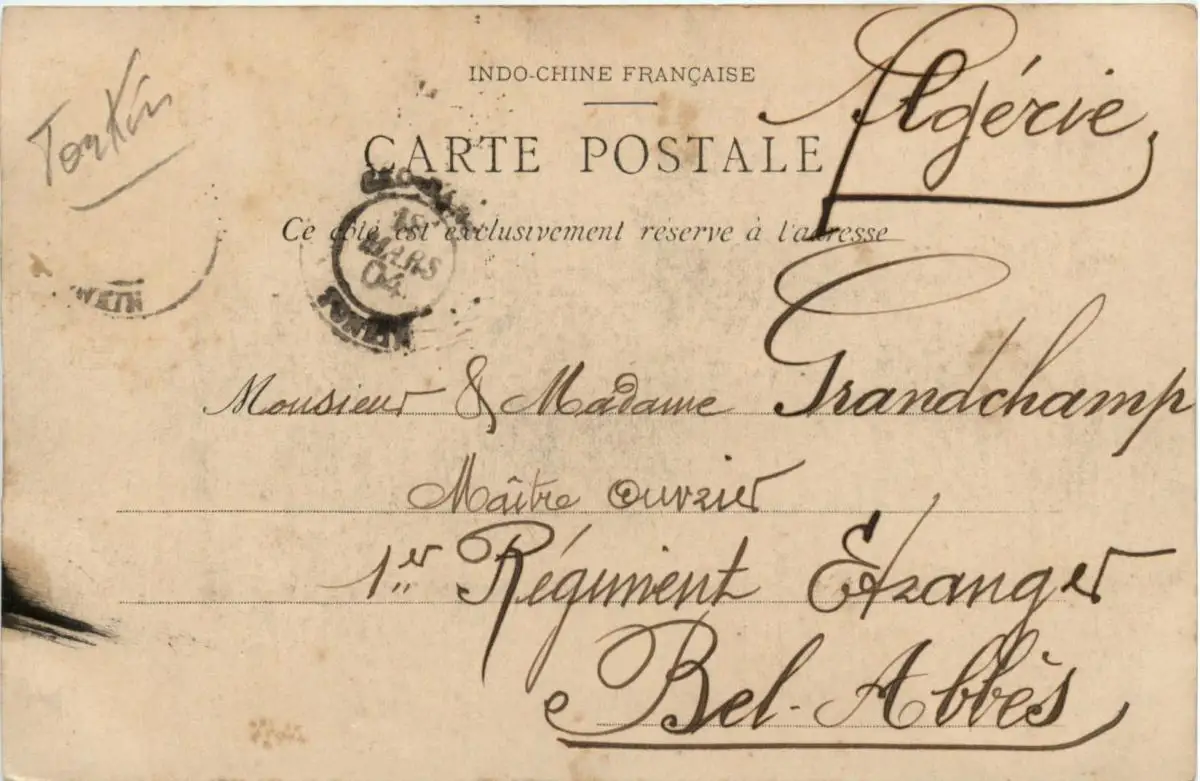 INDO-CHINE FRANÇAISE
Algérie
Tonkin
CARTE POSTALE
Ce côté est exclusivement réservé à l'adresse
18
MARS
04
TONKIN
Monsieur & Madame Grandchamp
Maître Ouvrier
1er Régiment Etranger
Bel-Abbès